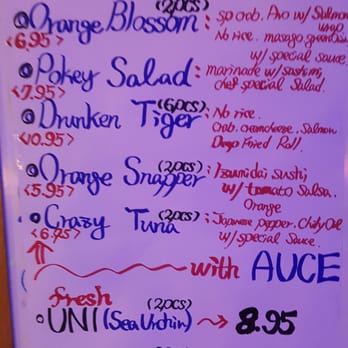 Orange Blossom (2pcs) : sp crab. Avo w/ Salmon wrap
<6.95> No rice. masago green
w/ special sauce.
Pokey Salad : marinade w/ sashimi,
<7.95> chef special Salad.
Drunken Tiger (6pcs) : No rice.
<10.95> Crab. creamcheese. Salmon
Deep Fried Roll.
Orange Snapper (2pcs) : Izumidai sushi
<5.95> w/ tomato Salsa.
Orange
Crazy Tuna (2pcs) : Japanese pepper. Chily Oil
<6.95> w/ special Sauce.
with AUCE
fresh (2pcs)
UNI (Sea Urchin) → 8.95